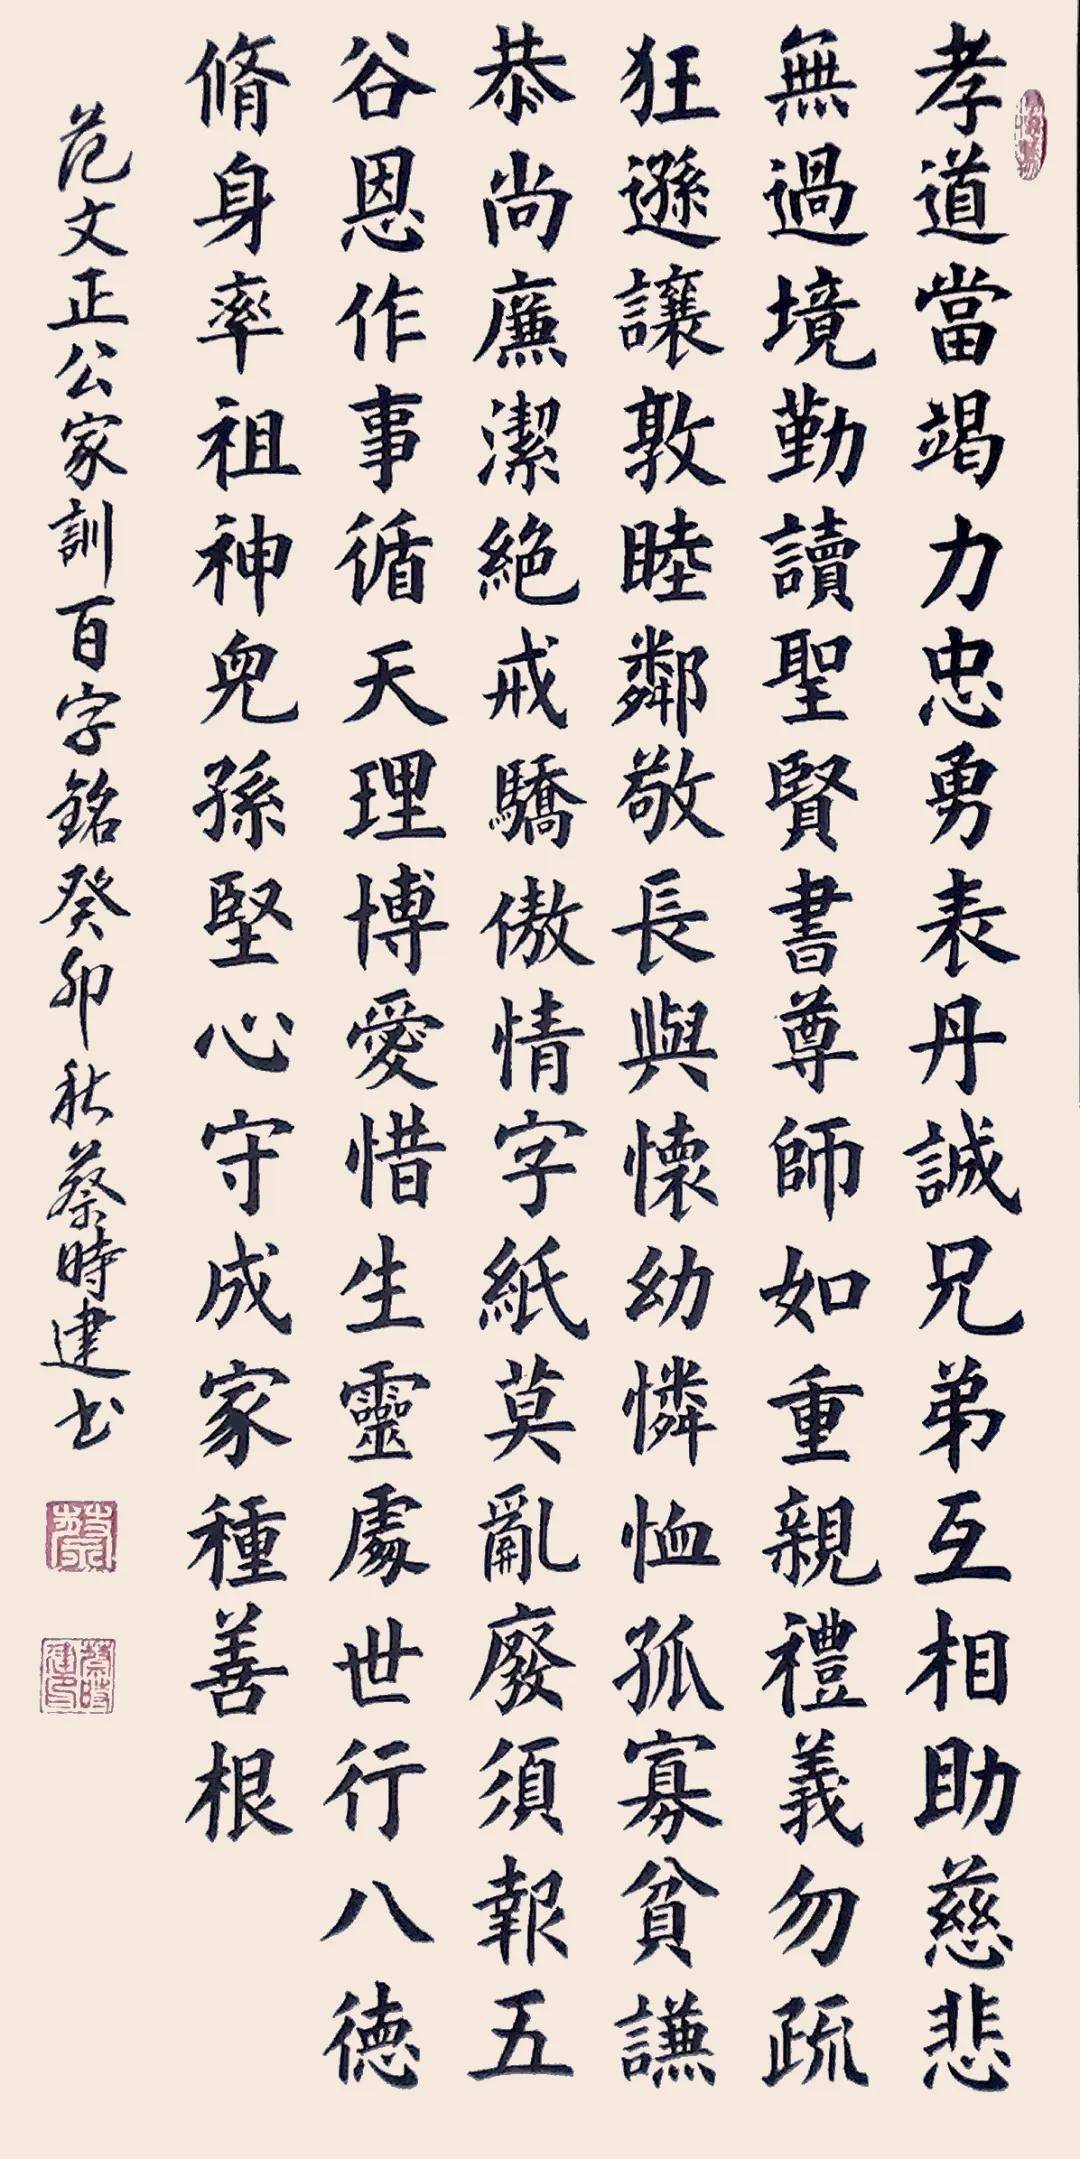 孝道當竭力忠勇表丹誠兄弟互相助慈悲
無過境勤讀聖賢書尊師如重親禮義勿疏
狂遜讓敦睦鄰敬長與懷幼憐恤孤寡貧謙
恭尚廉潔絕戒驕傲情字紙莫亂廢須報五
谷恩作事循天理博愛惜生靈處世行八德
脩身率祖神兒孫堅心守成家種善根
范文正公家訓百字銘癸卯秋蔡時建书
蔡
蔡時建印